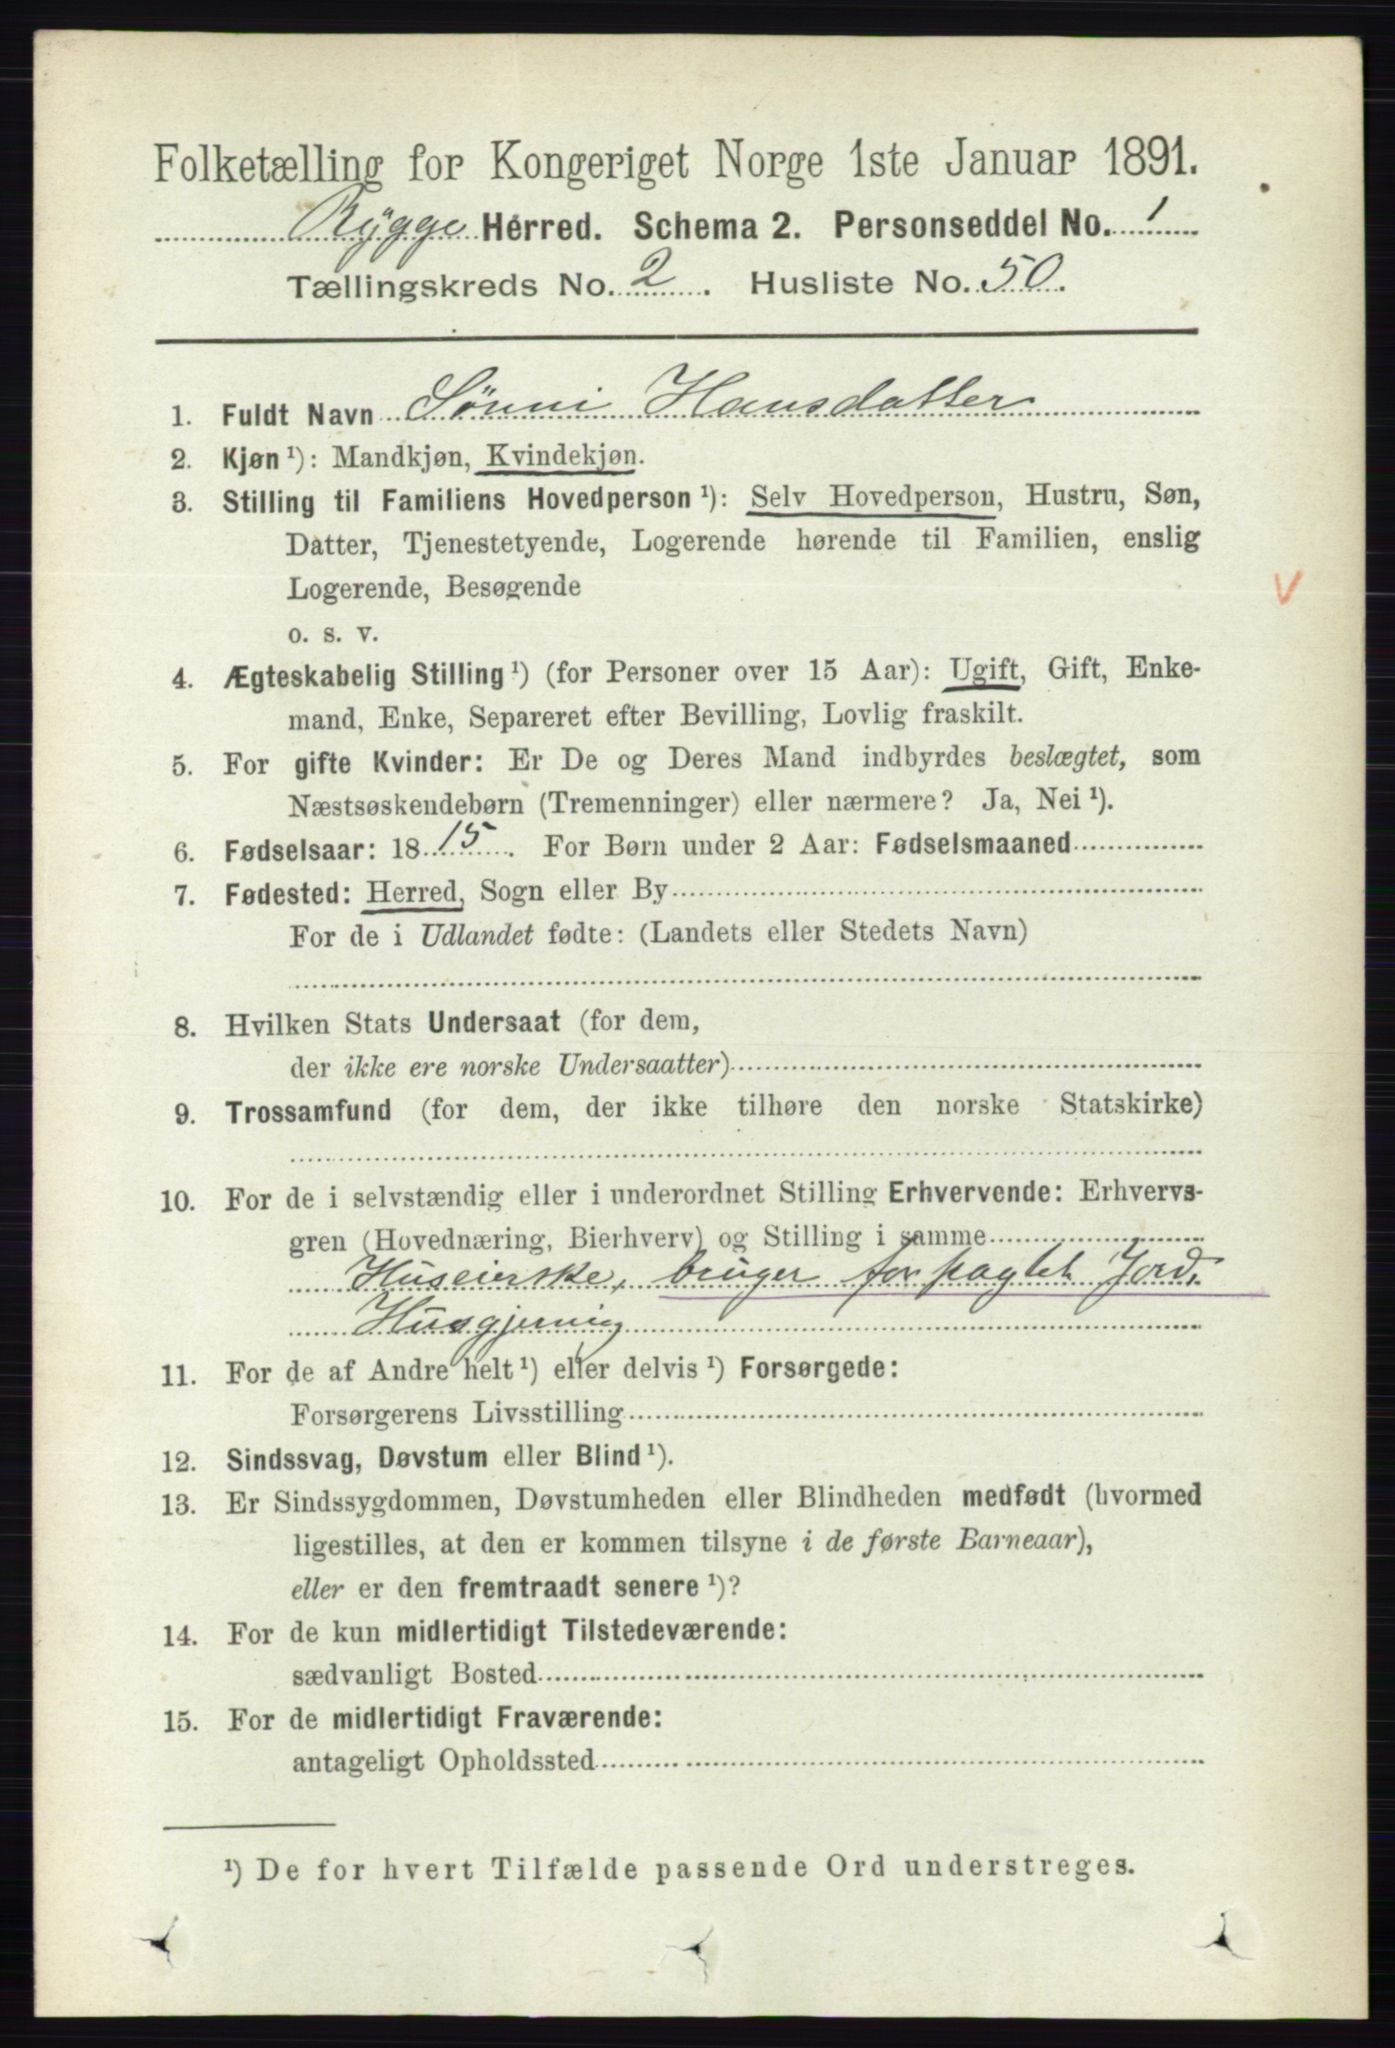 Folketælling for Kongeriget Norge 1ste Januar 1891.
Rygge Herred. Schema 2. Personseddel No. 1
Tællingskreds No. 2. Husliste No. 50.
1. Fuldt Navn Sønni Hansdatter
2. Kjøn ¹): Mandkjøn, Kvindekjøn.
3. Stilling til Familiens Hovedperson ¹): Selv Hovedperson, Hustru, Søn,
Datter, Tjenestetyende, Logerende hørende til Familien, enslig
Logerende, Besøgende
o. s. v.
V
4. Ægteskabelig Stilling ¹) (for Personer over 15 Aar): Ugift, Gift, Enke-
mand, Enke, Separeret efter Bevilling, Lovlig fraskilt.
5. For gifte Kvinder: Er De og Deres Mand indbyrdes beslægtet, som
Næstsøskendebørn (Tremenninger) eller nærmere? Ja, Nei ¹).
6. Fødselsaar: 18 15. For Børn under 2 Aar: Fødselsmaaned
7. Fødested: Herred, Sogn eller By
For de i Udlandet fødte: (Landets eller Stedets Navn)
8. Hvilken Stats Undersaat (for dem,
der ikke ere norske Undersaatter)
9. Trossamfund (for dem, der ikke tilhøre den norske Statskirke)
10. For de i selvstændig eller i underordnet Stilling Erhvervende: Erhvervs-
gren (Hovednæring, Bierhverv) og Stilling i samme
Huseierske, bruger forpagtet Jord.
Husgjerning
11. For de af Andre helt ¹) eller delvis ¹) Forsørgede:
Forsørgerens Livsstilling
12. Sindssvag, Døvstum eller Blind ¹).
13. Er Sindssygdommen, Døvstumheden eller Blindheden medfødt (hvormed
ligestilles, at den er kommen tilsyne i de første Barneaar),
eller er den fremtraadt senere ¹)?
14. For de kun midlertidigt Tilstedeværende:
sædvanligt Bosted
15. For de midlertidigt Fraværende:
antageligt Opholdssted
¹) De for hvert Tilfælde passende Ord understreges.